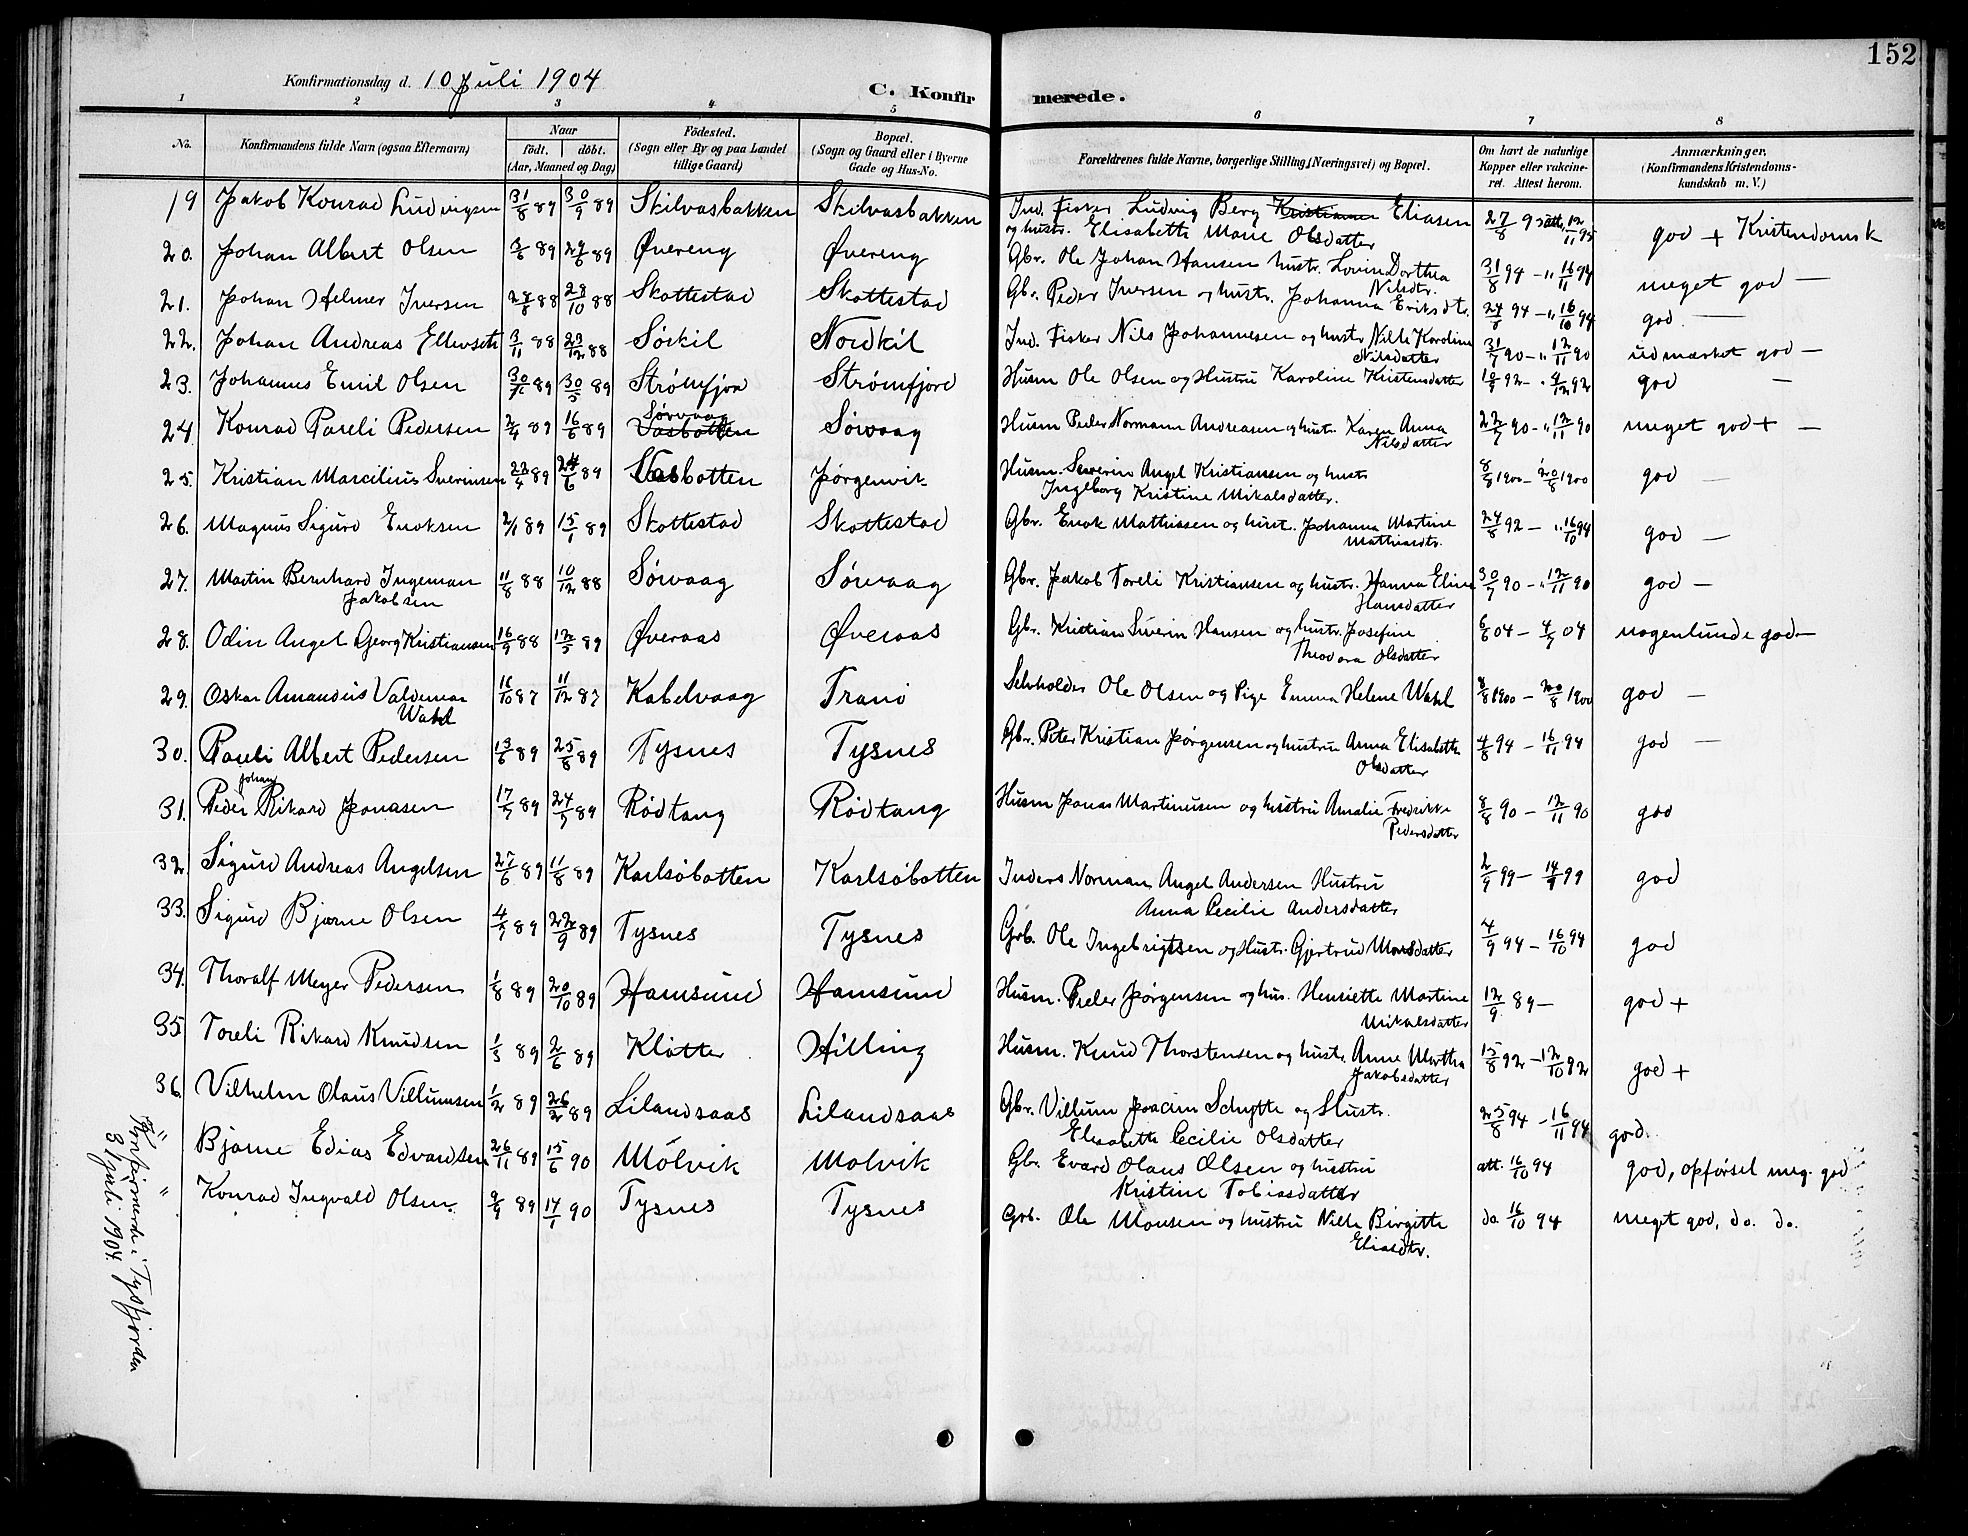 152
Konfirmationsdag d. 10 Juli 1904
C. Konfir merede.
1 2 3 4 5 6 7 8
No. Konfirmandens fulde Navn (ogsaa Efternavn) Naar födt. döbt. (Aar, Maaned og Dag) Födested. (Sogn eller By og paa Landet tillige Gaard) Bopæl. (Sogn og Gaard eller i Byerne Gade og Hus-No. Forældrenes fulde Navne, borgerlige Stilling (Næringsvei) og Bopæl. Om havt de naturlige Kopper eller vakcineret. Attest herom. Anmærkninger. (Konfirmandens Kristendomskundskab m. V.)
19 Jakob Konrad Ludvigsen 31/8 89 30/9 89 Skilvasbakken Skilvasbakken Ind. Fisker Ludvig Berg Kristianne Eliasen 27/8 95 att. 12/11 95 god + Kristendomsk
og hustr. Elisabeth Marie Olsdatter
20. Johan Albert Olsen 29/6 89 Øvereng Øvereng Gbr. Ole Johan Hansen hustr. Lovin Dorthea 31/8 94 - " 16/11 94 meget god —
Nilsdtr.
21. Johan Helmer Iversen 28/8 88 28/10 88 Skottestad Skottestad Gbr. Peder Iversen og hustr. Johanna Eriksdt. 24/8 94 - " 16/10 94 god. —
22. Johan Andreas Ellevseth 3/11 88 23/12 88 Sörkil Nordkil Ind. Fisker Nils Johannesen og hustr Nille Karoline 31/7 90 - " 12/11 90 udmærket god —
Nilsdatter
23. Johannes Emil Olsen 30/5 89 Strömfjord Strömfjord Husm Ole Olsen og Hustru Karoline Kristensdatter 10/9 92 - " 4/12 92 god —
24. Konrad Pareli Pedersen 2/4 89 16/6 89 Sørvaag Vasbotten Sörvaag Husm Peder Normann Andreasen og hustr. Karen Anna 22/7 90 - " 12/11 90 meget god + —
Nilsdatter
25. Kristian Marcelius Sverinsen 22/4 89 24/6 89 Vasbotten Jørgenvik Husm. Severin Angel Kristiansen og hustr 8/8 1900 - 20/8 1900 god —
Ingeborg Kristine Mikalsdatter.
26. Magnus Sigurd Enoksen 2/1 89 15/1 89 Skottestad Skottestad Gbr. Enok Mathiasen og hust. Johanna Martine 24/8 92 - " 16/10 94 god —
Mathiasdtr.
27. Martin Bernhard Ingeman 11/8 88 10/12 88 Sörvaag Sörvaag Gbr. Jakob Toreli Kristiansen og hustr. Hanna Eline 30/7 90 - " 12/11 90 god —
Jakobsen Hansdatter
28. Odin Angel Georg Kristiansen 16/9 88 12/5 89 Øveraas Øveraas Gbr. Kristian Siverin Hansen og hustr. Josefine 6/6 04 - 4/7 04 nogenlunde god —
Theodora Olsdatter
29. Oskar Amandus Valdemar 16/10 87 11/12 87 Kabelvaag Tranö Selvholder Ole Olsen og Pige Emma Helene Wahl 8/8 1900 - 20/8 1900 god —
Wahl
30. Pareli Albert Pedersen 13/6 89 25/8 89 Tysnes Tysnes Gbr. Peter Kristian Jørgensen og hustru Anna Elisabeth 4/8 94 - 16/11 94 god —
Olsdatter
31. Peder Johan Rikard Jonasen 17/5 89 24/5 89 Rödtang Rödtang Husm Jonas Martinusen og hustru Amalie Fredrikke 8/8 90 - 12/11 90 god
Pedersdatter
32. Sigurd Andreas Angelsen 27/6 89 11/8 89 Karlsöbotten Karlsöbotten Inders Norman Angel Andersen Hustru 2/9 99 - 14/9 99 god
Anna Cecilie Andersdatter
33. Sigurd Bjarne Olsen 4/7 89 22/9 89 Tysnes Tysnes Grb. Ole Ingebrigtsen og Hustr. Gjertrud Monsdatter 4/9 94 - 16/10 94 god
34. Thoralf Meyer Pedersen 1/8 89 20/10 89 Hamsund Hamsund Husm. Peder Jørgensen og hus. Henriette Martine 12/9 89 - god +
Mikalsdatter
35 Toreli Rikard Knudsen 1/3 89 2/6 89 Klötter Hilling Husm. Knud Thorstensen og hustr. Anne Martha 15/8 92 - 12/10 92 god +
Jakobsdatter
36. Vilhelm Olaus Villumsen 1/2 89 26/2 89 Lilandsaas Lilandsaas Gbr. Villum Joacim Schytte og Hustr. 25/8 94 - 16/11 94 god.
Elisabeth Cecilie Olsdatter
" Bjarne Edias Edvardsen 26/11 89 15/6 90 Mölvik Molvik Gbr. Evard Olaus Olsen og hustru att. 16/10 94 god, opförsel meg. god
Kristine Tobiasdatter
" Konrad Ingvald Olsen 9/9 89 14/1 90 Tysnes Tysnes Grb. Ole Monsen og hustru Nille Birgitte da 16/10 94 meget god, do. do.
Eliasdtr.
Konfirmerede i Tysfjorden
31 Juli 1904